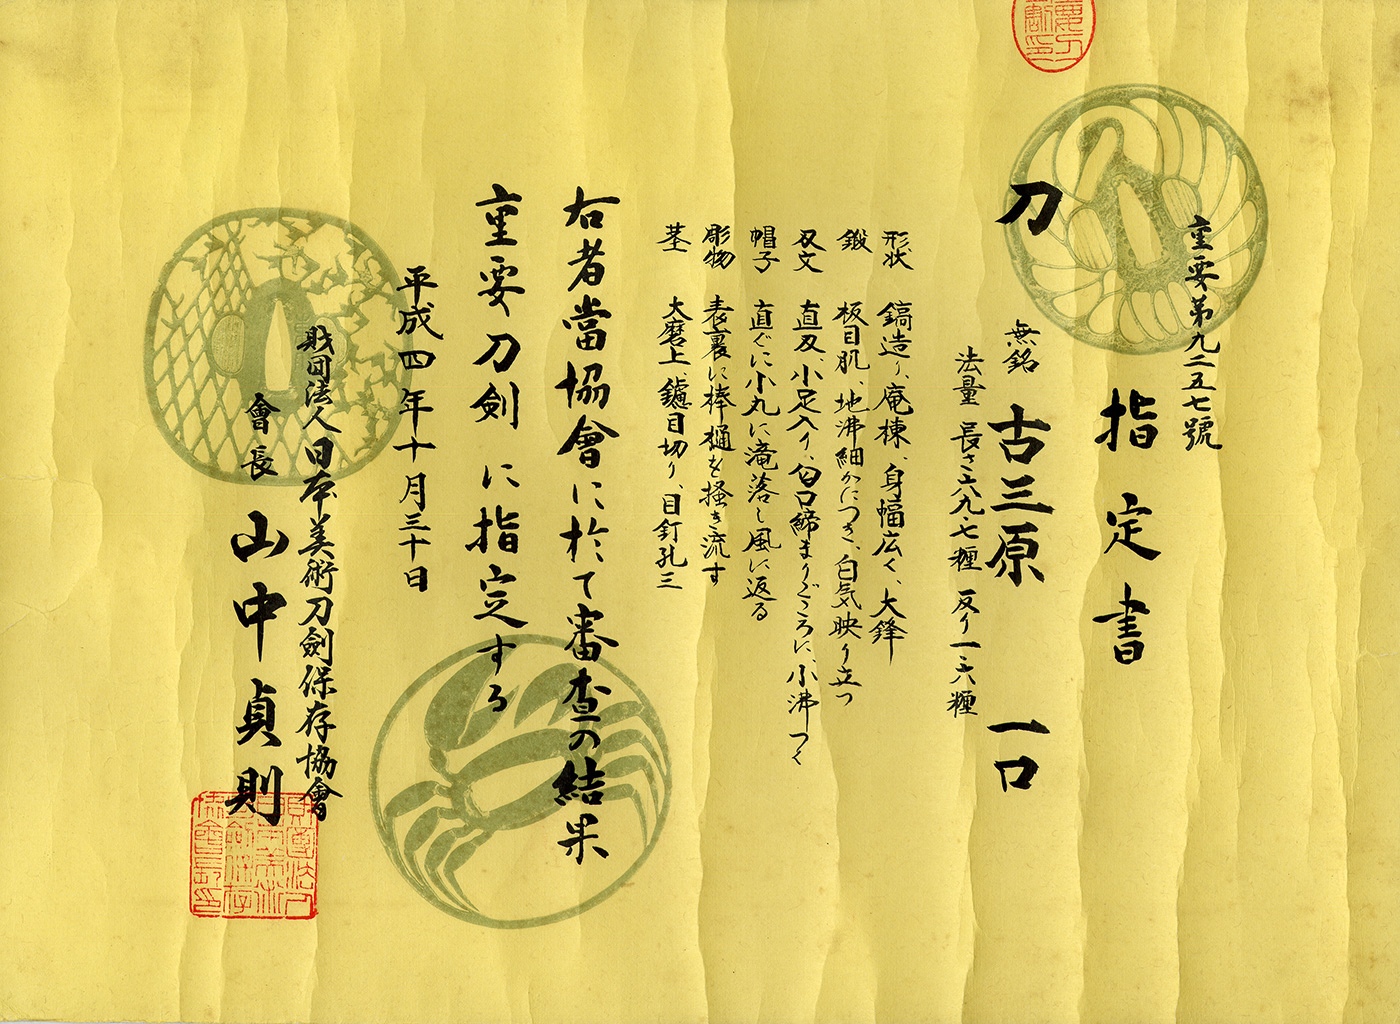 重要第九二五七號
指定書
刀 無銘 古三原 一口
法量 長さ六八九・七糎 反り一・六糎
形状 鎬造り、庵棟、身幅広く、大鋒
鍛 板目肌、地沸細かにつき、白気映り立つ
刃文 直刃、小足入り、匂口締まりごころに、小沸つく
帽子 直ぐに小丸に滝落し風に返る
彫物 表裏に棒樋を掻き流す
茎 大磨上、鑢目切り、目釘孔三
右者當協會に於て審査の結果
重要刀剣に指定する
平成四年十月三十日
財団法人日本美術刀劍保存協會
會長 山中貞則